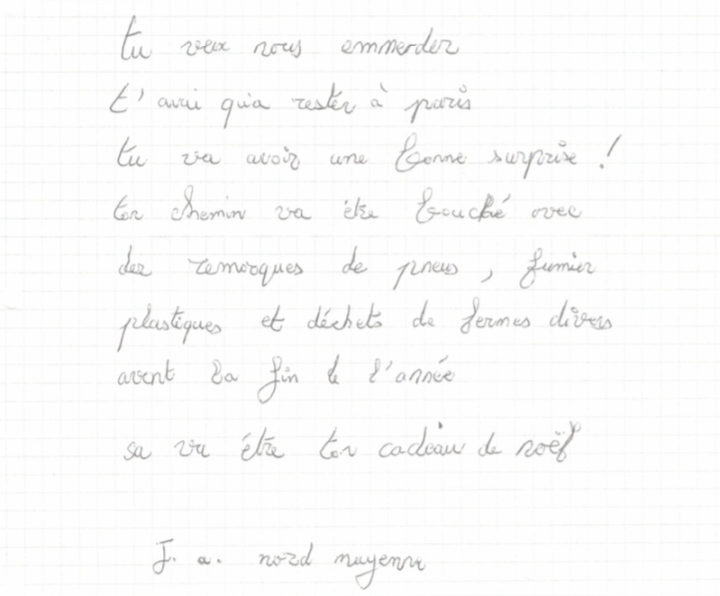 tu veux nous emmerder
t' avai qu'a rester à paris
tu va avoir une bonne surprise !
ton chemin va être bouché avec
des remorques de pneus , fumier
plastiques et déchets de fermes divers
avent la fin de l'année
sa va être ton cadeau de noël
J. a. nord mayenne